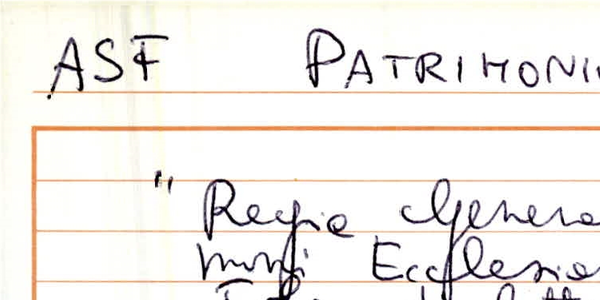 ASF PATRIMONI
" Regie Genera
moni Ecclesia